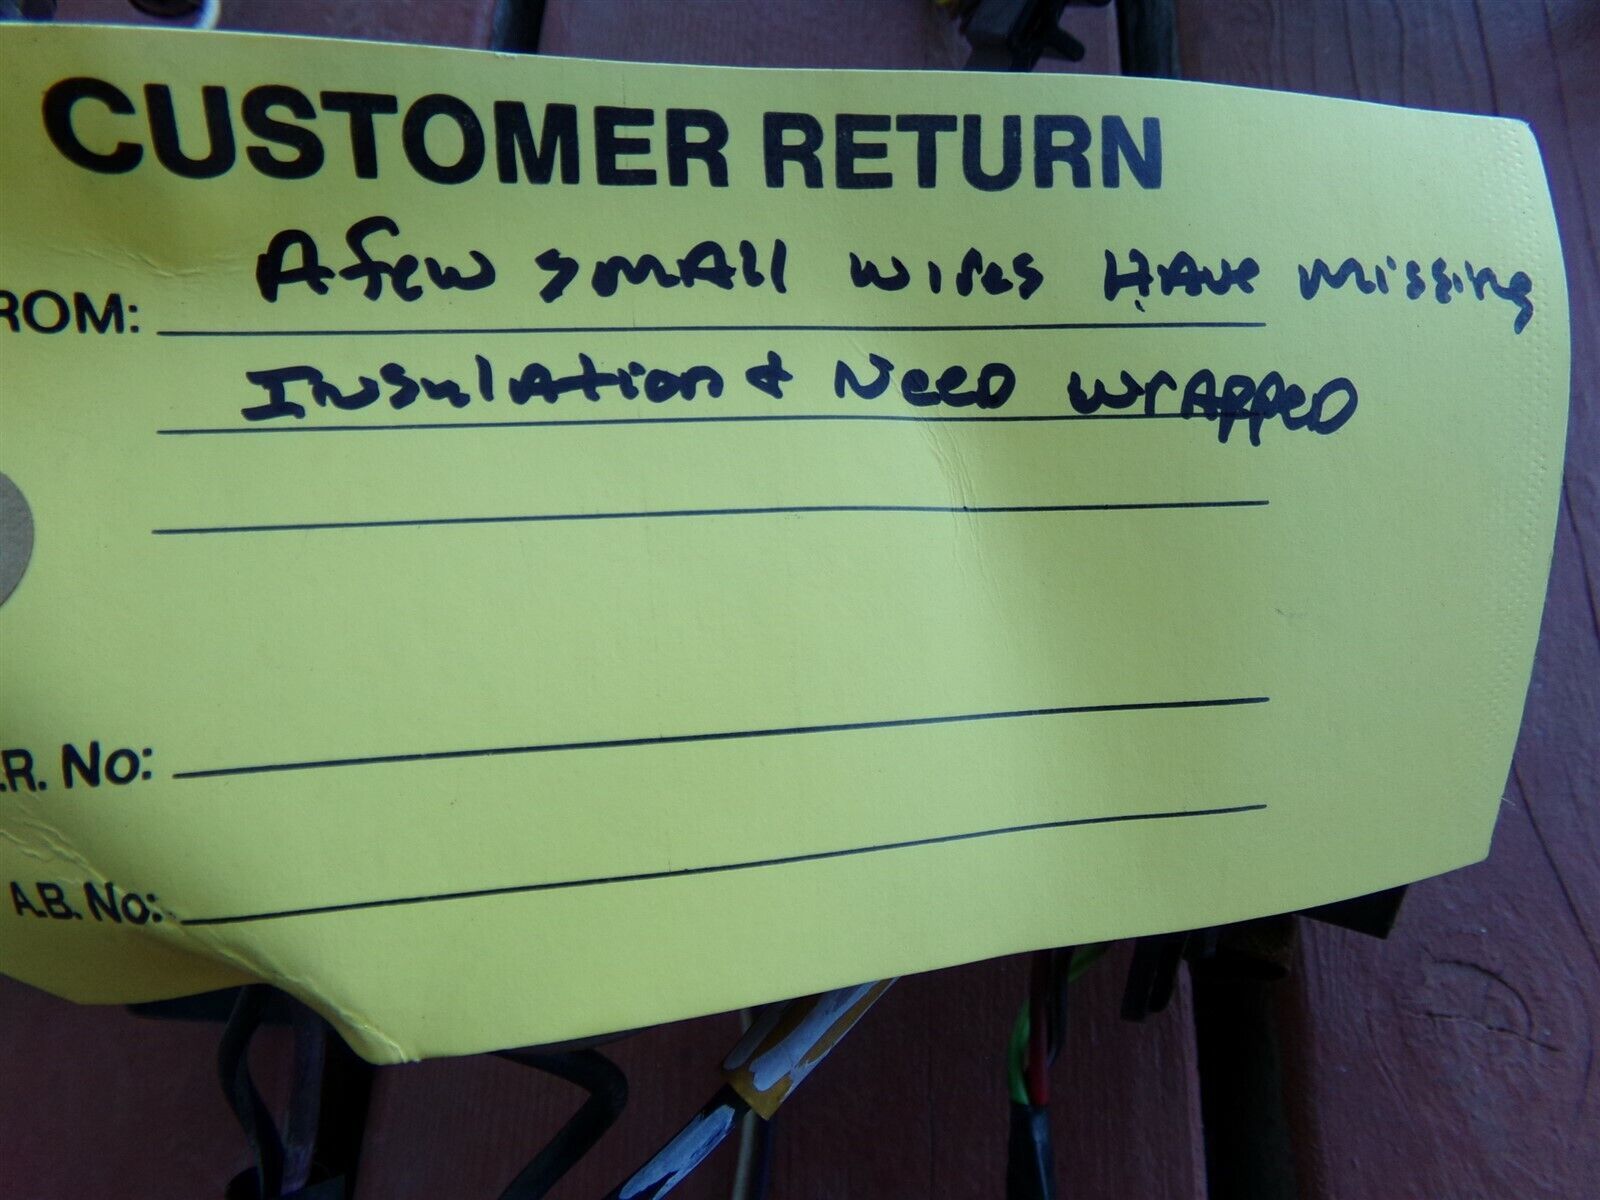 CUSTOMER RETURN
ROM: A few small wires HAve missing
Insulation & Need wrapped
.R. No:
A.B. No: